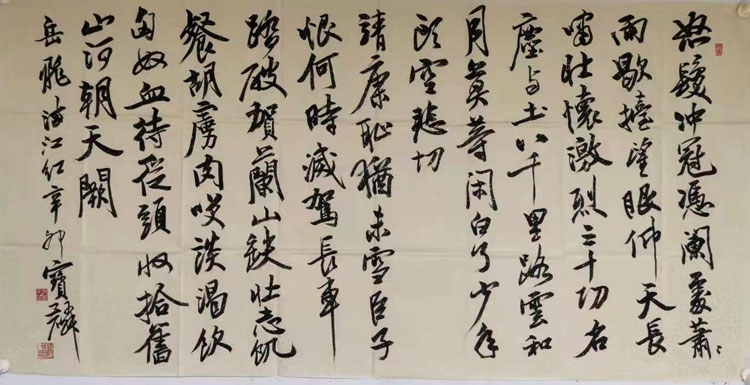 怒髮冲冠憑阑處萧〻
雨歇擡望眼仰天長
嘯壮懷激烈三十功名
塵与土八千里路雲和
月莫等闲白了少年
头空悲切
靖康恥猶未雪臣子
恨何時滅駕長車
踏破賀蘭山缺壮志飢
餐胡虜肉笑談渴飲
匈奴血待從頭收拾舊
山河朝天闕
岳飛满江红辛卯寶麟